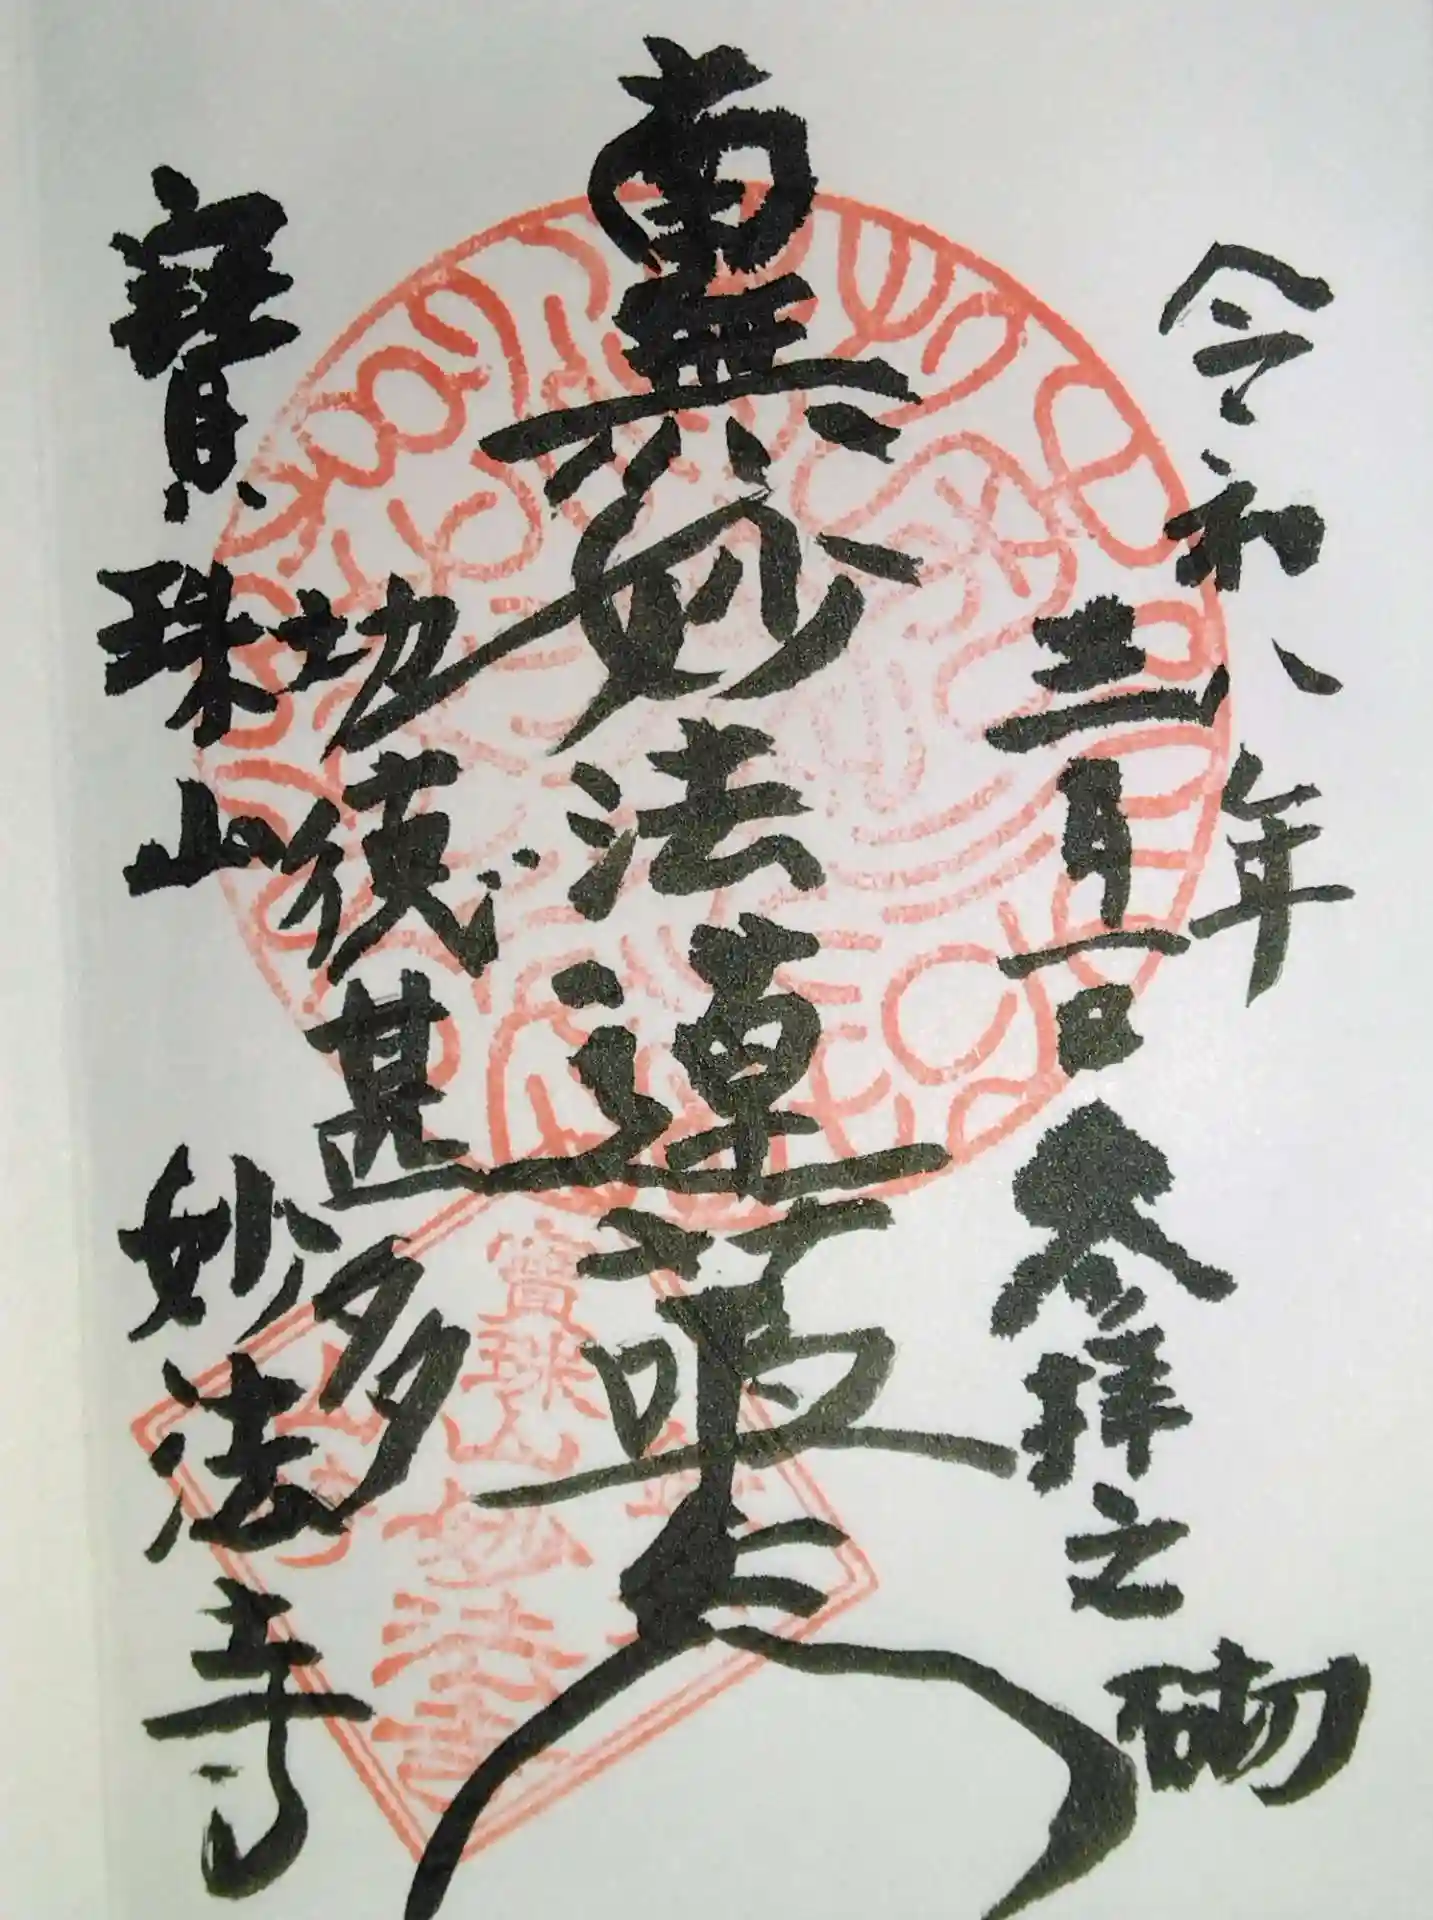 令和八年
三月一日
参拝之砌
南無妙法蓮華経
功徳甚多
寶珠山
妙法寺
寶珠山
妙法寺